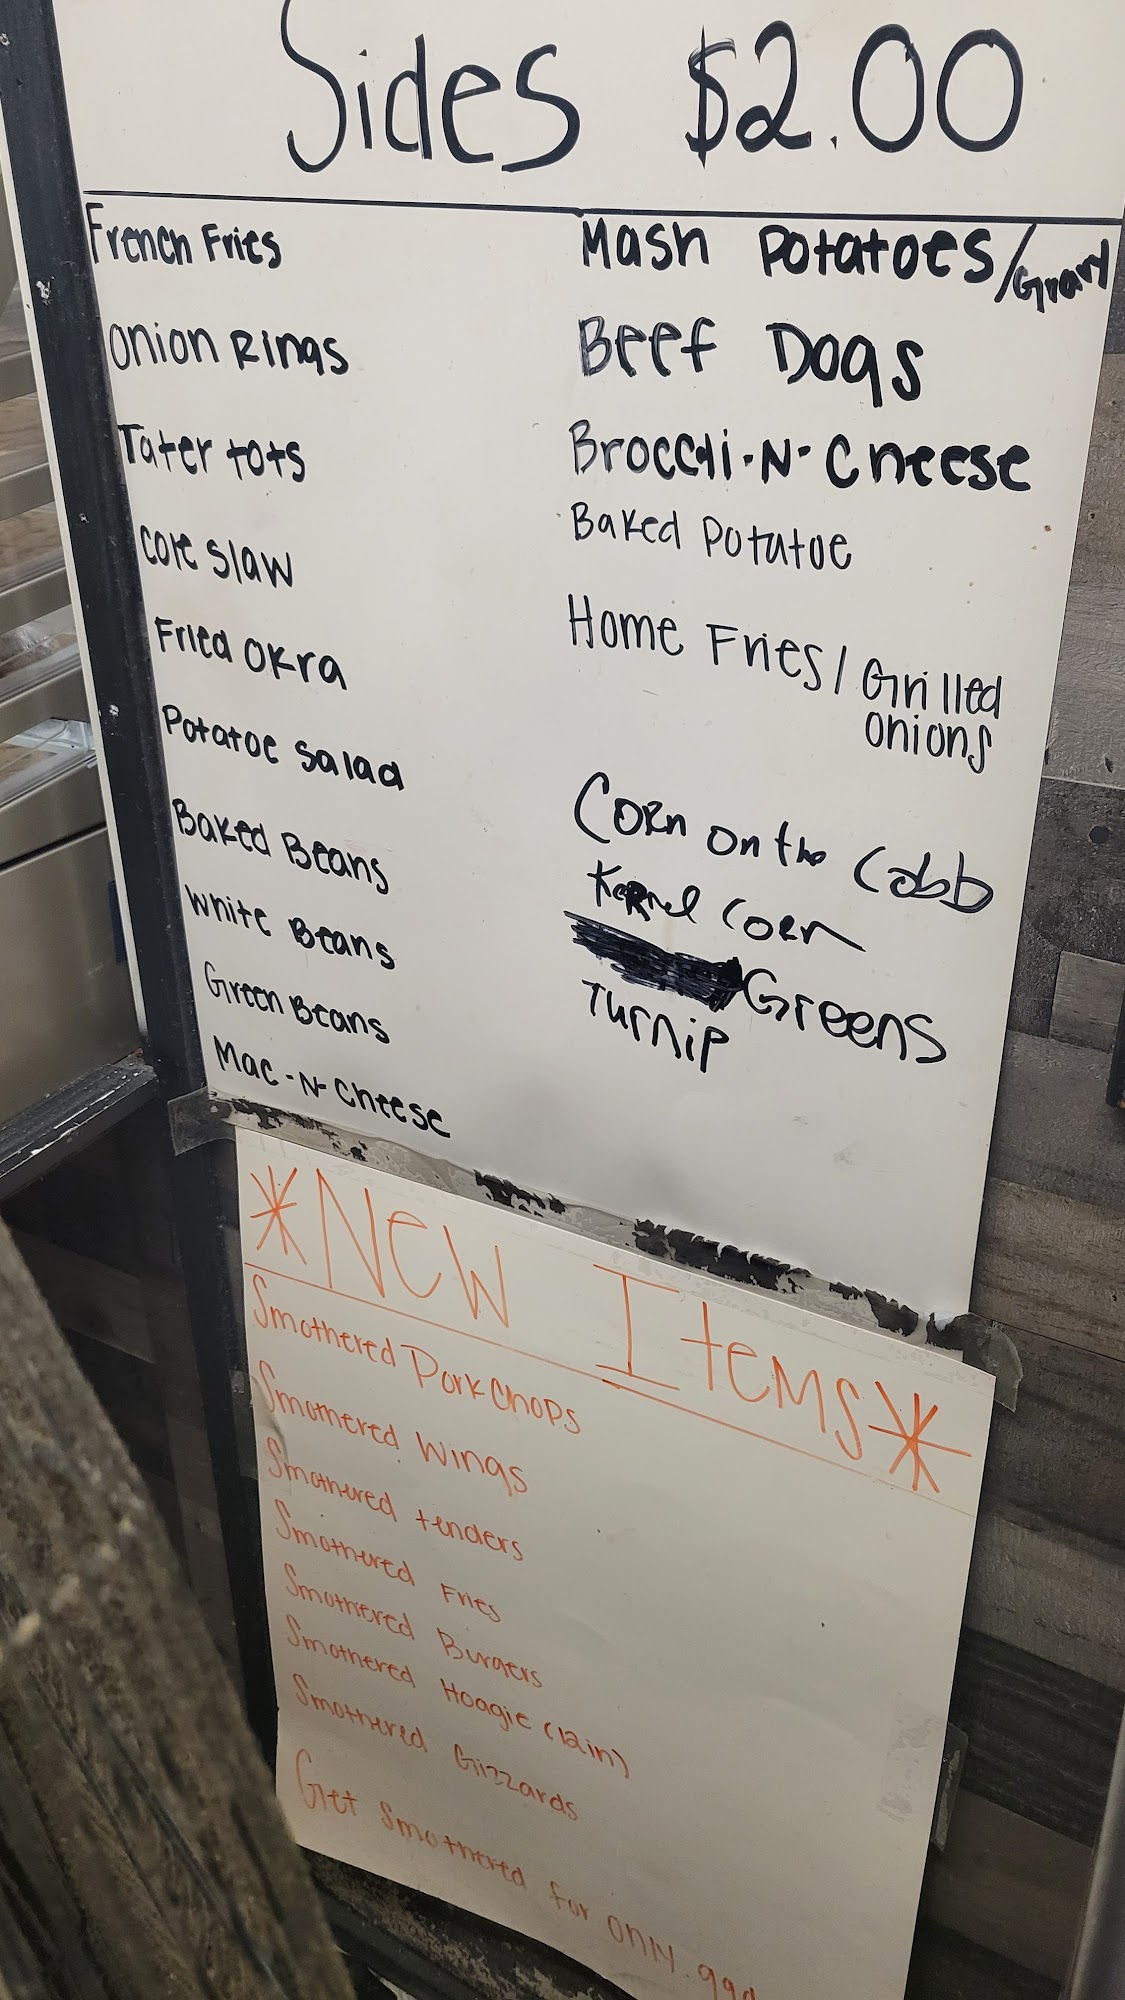 Sides $2.00
French Fries
Onion Rings
Tater tots
Cole Slaw
Fried Okra
Potatoe Salad
Baked Beans
White Beans
Green Beans
Mac-N-Cheese
Mash Potatoes/Gravy
Beef Dogs
Broccoli-N-Cheese
Baked Potatoe
Home Fries/Grilled
onions
Corn on the Cobb
Kernel Corn
Greens
Turnip
*New Items*
Smothered Pork Chops
Smothered Wings
Smothered tenders
Smothered Fries
Smothered Burgers
Smothered Hoagie (12in)
Smothered Gizzards
Get Smothered for only .99¢